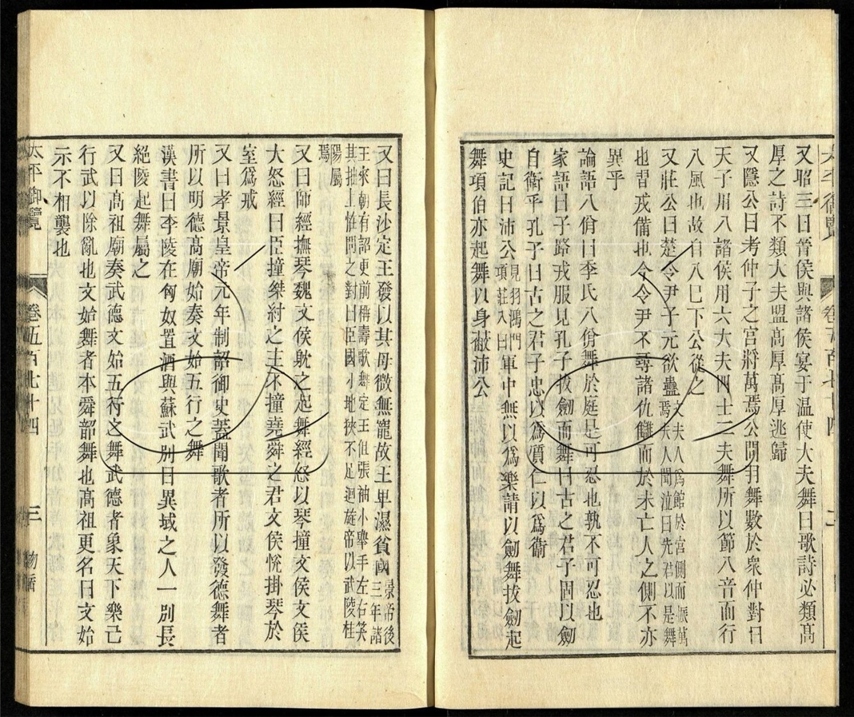 又昭三曰晉侯與諸侯宴于温使大夫舞曰歌詩必類高
厚之詩不類大夫盟高厚高厚逃歸
又隱公曰考仲子之宮將萬焉公問羽舞數於衆仲對曰
天子用八諸侯用六大夫四士二夫舞所以節八音而行
八風也故自八已下公從之
又莊公曰楚令尹子元欲蠱文夫人爲館於宮側而振萬焉夫人聞泣曰先君以是舞
也習戎備也今令尹不尋諸仇讎而於未亡人之側不亦
異乎
論語八佾曰季氏八佾舞於庭是可忍也孰不可忍也
家語曰子路戎服見孔子拔劒而舞曰古之君子固以劒
自衛乎孔子曰古之君子忠以爲質仁以爲衛
史記曰沛公見羽鴻門項莊入曰軍中無以爲樂請以劒舞拔劒起
舞項伯亦起舞以身蔽沛公
太平御覽
卷五百七十四
三
又曰長沙定王發以其母微無寵故王卑濕貧國景帝後三年諸
王來朝有詔更前稱壽歌舞定王但張袖小舉手左右笑
其拙上怪問之對曰臣國小地狹不足迴旋帝以武陵桂
陽屬焉
又曰師經撫琴魏文侯耽之起舞經怒以琴撞文侯文侯
大怒經曰臣撞桀紂之主不撞堯舜之君文侯恱掛琴於
室爲戒
又曰孝景皇帝元年制詔御史蓋聞歌者所以發德舞者
所以明德高廟始奏文始五行之舞
漢書曰李陵在匈奴置酒與蘇武別曰異域之人一別長
絕陵起舞屬之
又曰高祖廟奏武德文始五行之舞武德者象天下樂己
行武以除亂也文始舞者本舜韶舞也高祖更名曰文始
示不相襲也
太平御覽
卷五百七十四
三